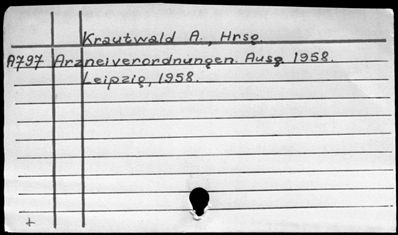 Krautwald A., Hrsg.
A797 Arzneiverordnungen. Ausg. 1958.
Leipzig, 1958.
+